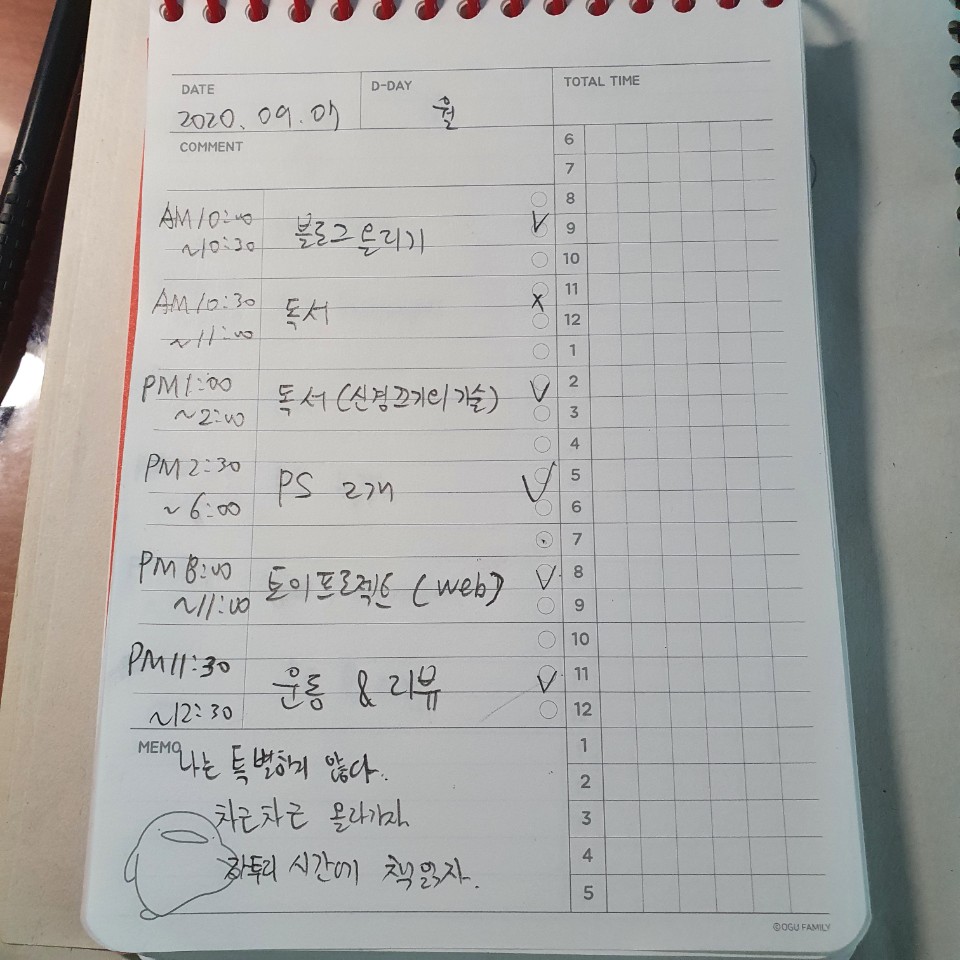 DATE
2020. 09. 07
D-DAY
월
TOTAL TIME
COMMENT
6
7
8
9
10
11
12
1
2
3
4
5
6
7
8
9
10
11
12
1
2
3
4
5
AM 10:00
~10:30
블로그 올리기
AM 10:30
~11:00
독서
PM 1:00
~2:00
독서 (신경끄기의 기술)
PM 2:30
~6:00
PS 2개
PM 8:00
~11:00
토이프로젝트 (web)
PM 11:30
~12:30
운동 & 리뷰
MEMO
나는 특별하지 않다.
차근차근 올라가자
자투리 시간에 책읽자.
©OGU FAMILY